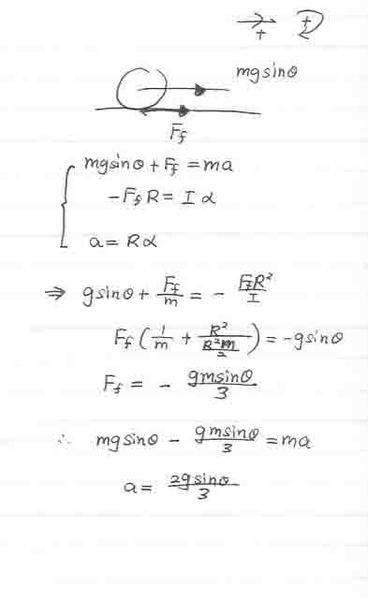 + +
mgsinθ
F_f
mgsinθ + F_f = ma
-F_f R = I α
a = Rα
⇒ gsinθ + F_f/m = - F_f R²/I
F_f (1/m + R²/(R²m/2)) = -gsinθ
F_f = - gmsinθ/3
∴ mgsinθ - gmsinθ/3 = ma
a = 2gsinθ/3